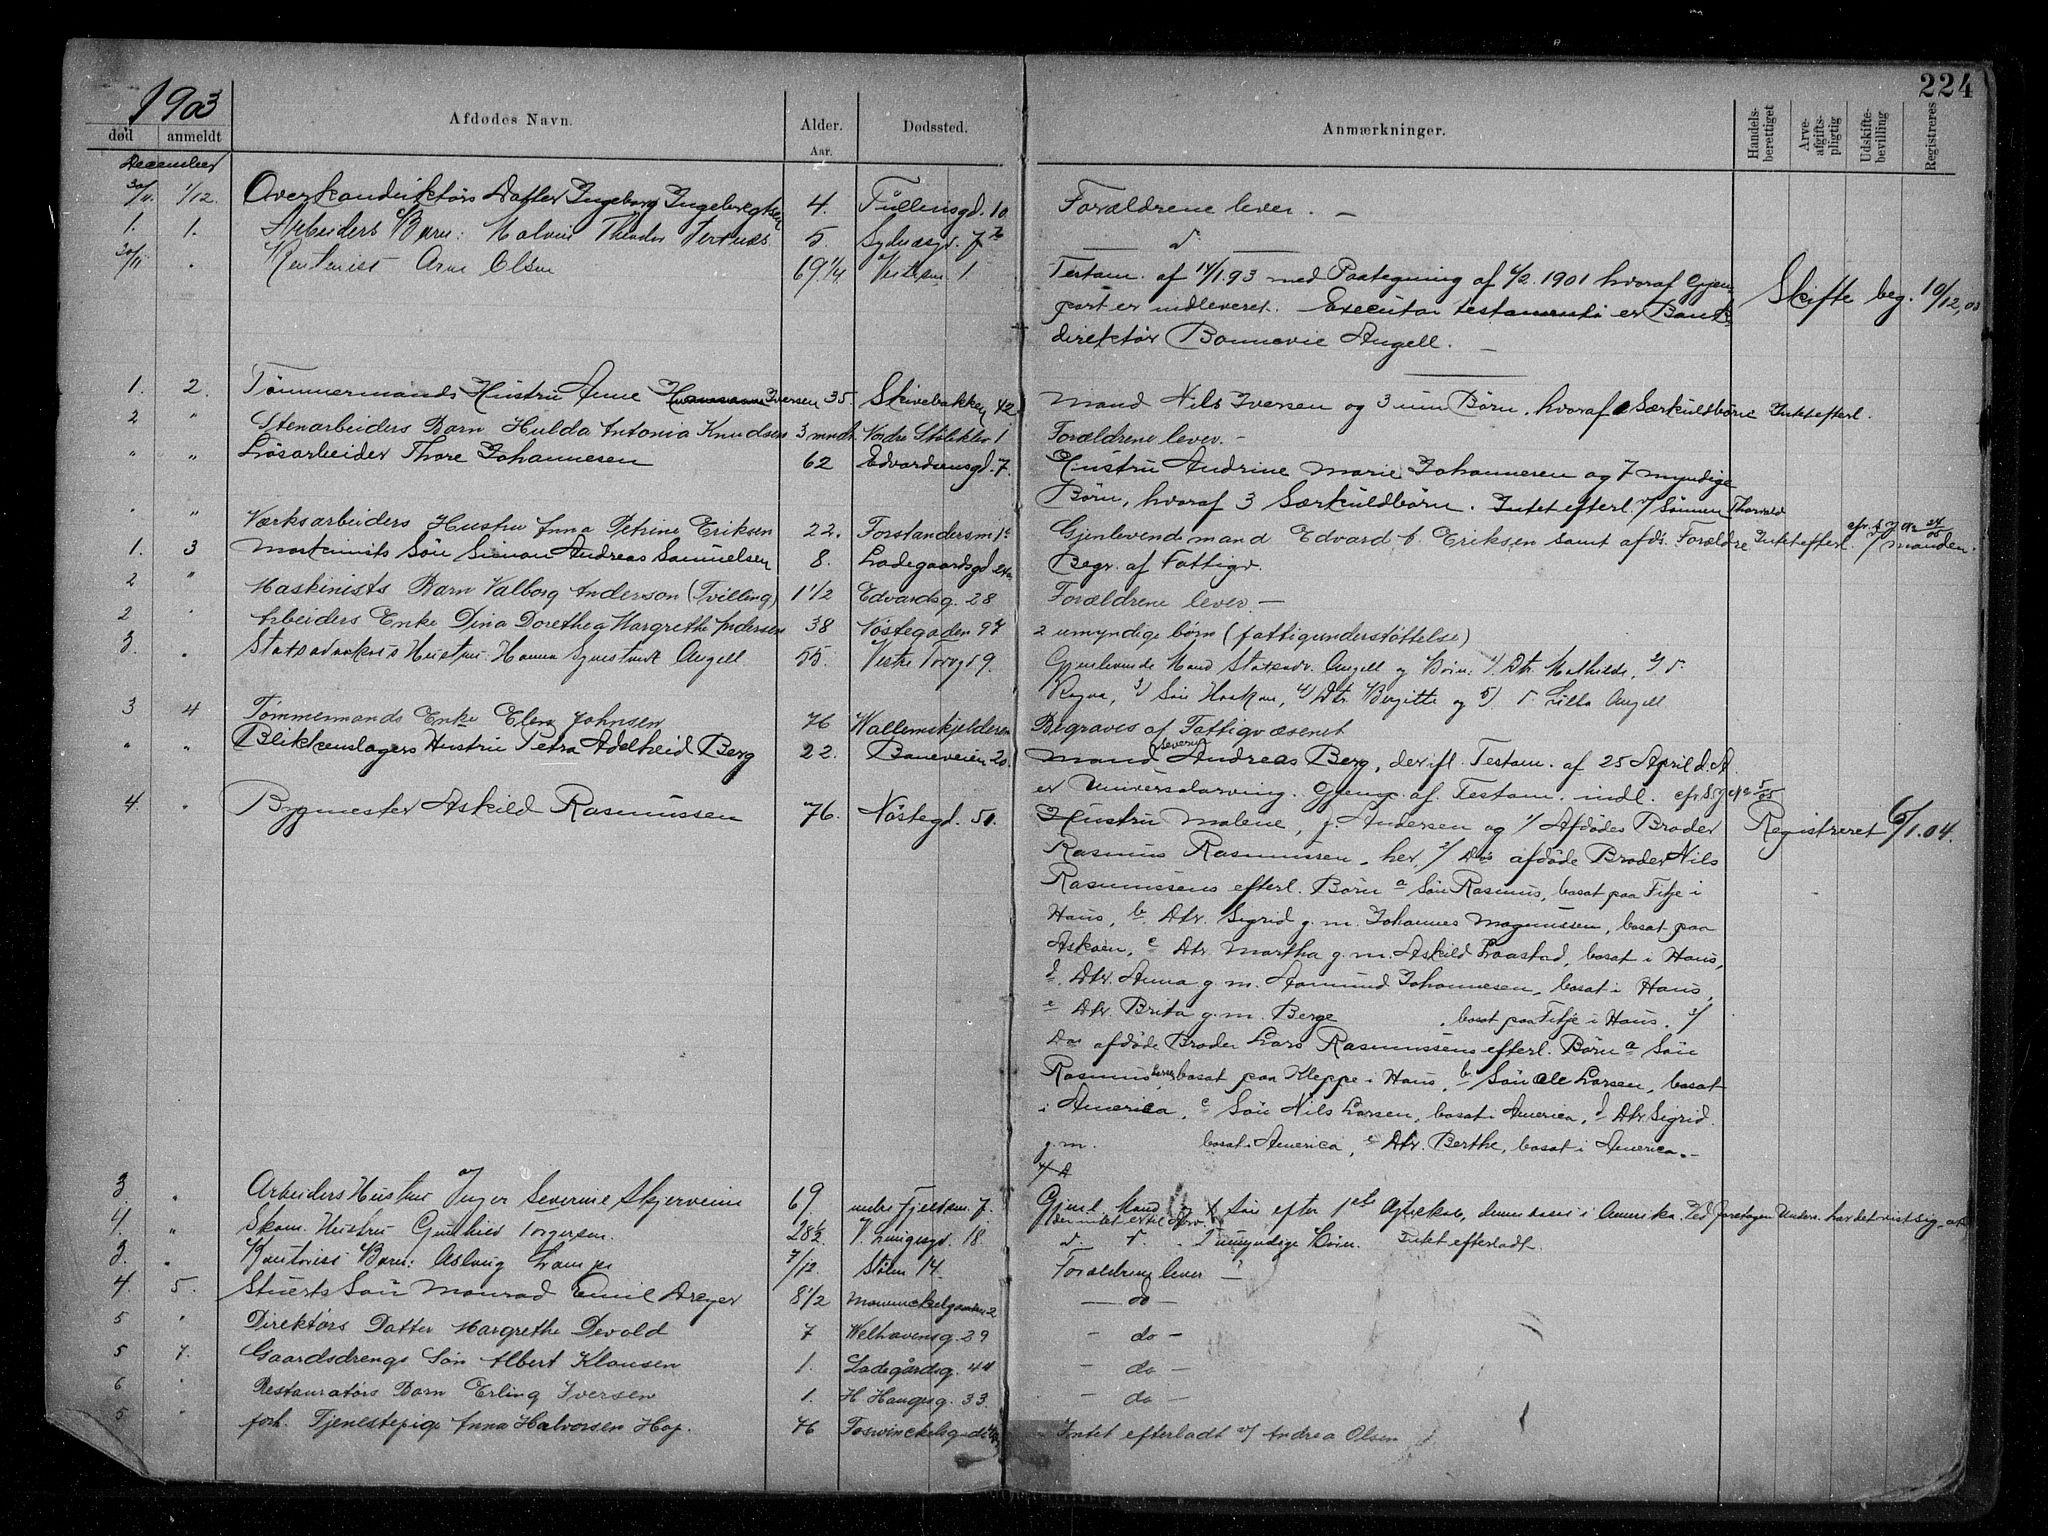 224
1903
død anmeldt Afdødes Navn. Alder. Aar. Dødssted. Anmærkninger. Handelsberettiget Arveafgiftspligtig Udskiftebevilling Registreres
December
30/11 1/12. Overkonduktørs Datter Ingeborg Ingebregtsen 4. Tullinsgd. 10 Forældrene lever. —
1. 1. Arbeiders Barn: Malvin Theodor 5. Sydnæsgd. 7 — d. —
30/11 " Rentenist Arne Olsen 69 1/4 1 Testam. af 14/1.93 med Paategning af 4/2. 1901 hvoraf Gjen-
part er indleveret. Executor testamenti er Bank- Skifte beg. 10/12.03
direktør Bonnevie Angell. —
1. 2. Tømmermands Hustru Anne Iversen 35. Skivebakken 42 Mand Nils Iversen og 3 um Børn, hvoraf Særkuldbørn Intet efterl.
2 " Stenarbeiders Barn Hulda Antonia Knudsen 3 mndr. Nordre Stølekleiv 1 Forældrene lever. —
" " Løsarbeider Thore Johannesen 62 Edvardsensgd. 7. Hustru Andrine Marie Johannesen og 7 myndige
Børn, hvoraf 3 Særkuldbørn. Intet efterl. v/ Sønnen Thorvald
" " Værksarbeiders Hustru Anna Petrine Eriksen 22. Forstandersm 1 Gjenlevende mand Edvard Eriksen samt afds. Forældre Intet efterl. v/ manden.
1. 3 Maskinists Søn Simon Andreas Samuelsen 8. Ladegaardsgd 24 Begr. af Fattigv.
2 " Maskinists Barn Valborg Anderson (Tvilling) 1 1/2 Edvardsg. 28 Forældrene lever. —
2 " Arbeiders Enke Dina Dorethea Margrethe Andersen 38 Nøstegaden 97 2 umyndige børn (fattigunderstøttelse)
3. " Statsadvokats Hustru Hanna Angell 55. Vestre Torvgd 9. Gjenlevende Mand Statsadv. Angell og Børn: 1) Dtr. Mathilde, 2) d.
Ragna, 3) Søn Haakon, 4) Dtr Bergitte og 5) d. Lilla Angell
3 4 Tømmermands Enke Elen Johnsen 76 Wallemskjelderen Begraves af Fattigvæsenet
" " Blikkenslagers Hustru Petra Adelheid Berg 22. Baneveien 20. Mand Severin Andreas Berg, der ifl. Testam. af 25 April d. A.
er Universalarving. Gjenp. af Testam. indl.
4. " Bygmester Askild Rasmussen 76. Nøstegd. 51. Hustru Malene, f. Andersen og 1/ Afdødes Broder Registreret 6/1.04.
Rasmus Rasmussen, her, 2/ Do afdøde Broder Nils
Rasmussens efterl. Børn a Søn Rasmus, bosat paa Fitje i
Haus, b Dtr. Sigrid g. m. Johannes Magnussen, bosat paa
Askøen, c Dtr. Martha g. m. Askild Laastad, bosat i Haus,
d. Dtr. Anna g. m. Aamund Johannesen, bosat i Haus,
e Dtr Brita g. m. Berge , bosat paa Fitje i Haus. 3/
Dos afdøde Broder Lars Rasmussens efterl. Børn a Søn
Rasmus Larsen bosat paa Kleppe i Haus, b Søn Ole Larsen, bosat
i America, c Søn Nils Larsen, bosat i America, d Dtr Sigrid
g. m. bosat i America, e Dtr. Berthe, bosat i America. —
3 " Arbeiders Hustru Inger Severine Skjerveim 69. 7. Gjenl. Mand Søn efter 1ste Ægteskab, denne bosat i Amerika.
4. " Skom. Hustru Gunhild Torgersen 28 1/2 V. Lungegd. 18. d. d. umyndige Børn. Intet efterladt.
3. " Kontorist Barn: Aslaug Lampe 7/12 Stølen 14. Forældrene lever —
4. 5. Stuerts Søn Monrad Emil Dreyer 8 1/2 2 — do —
5 " Direktørs Datter Margrethe Devold 7 Welhavensg. 29 — do —
5 7. Gaardsdrengs Søn Albert Klausen 1. Ladegårdsg. 44 — do —
6 " Restauratørs Barn Erling Iversen 1. H. Haugesg. 33. — do —
5 " forh. Tjenestepige Anna Halvorsen Hop. 46 Foswinckelsgd Intet efterladt v/ Andrea Olsen